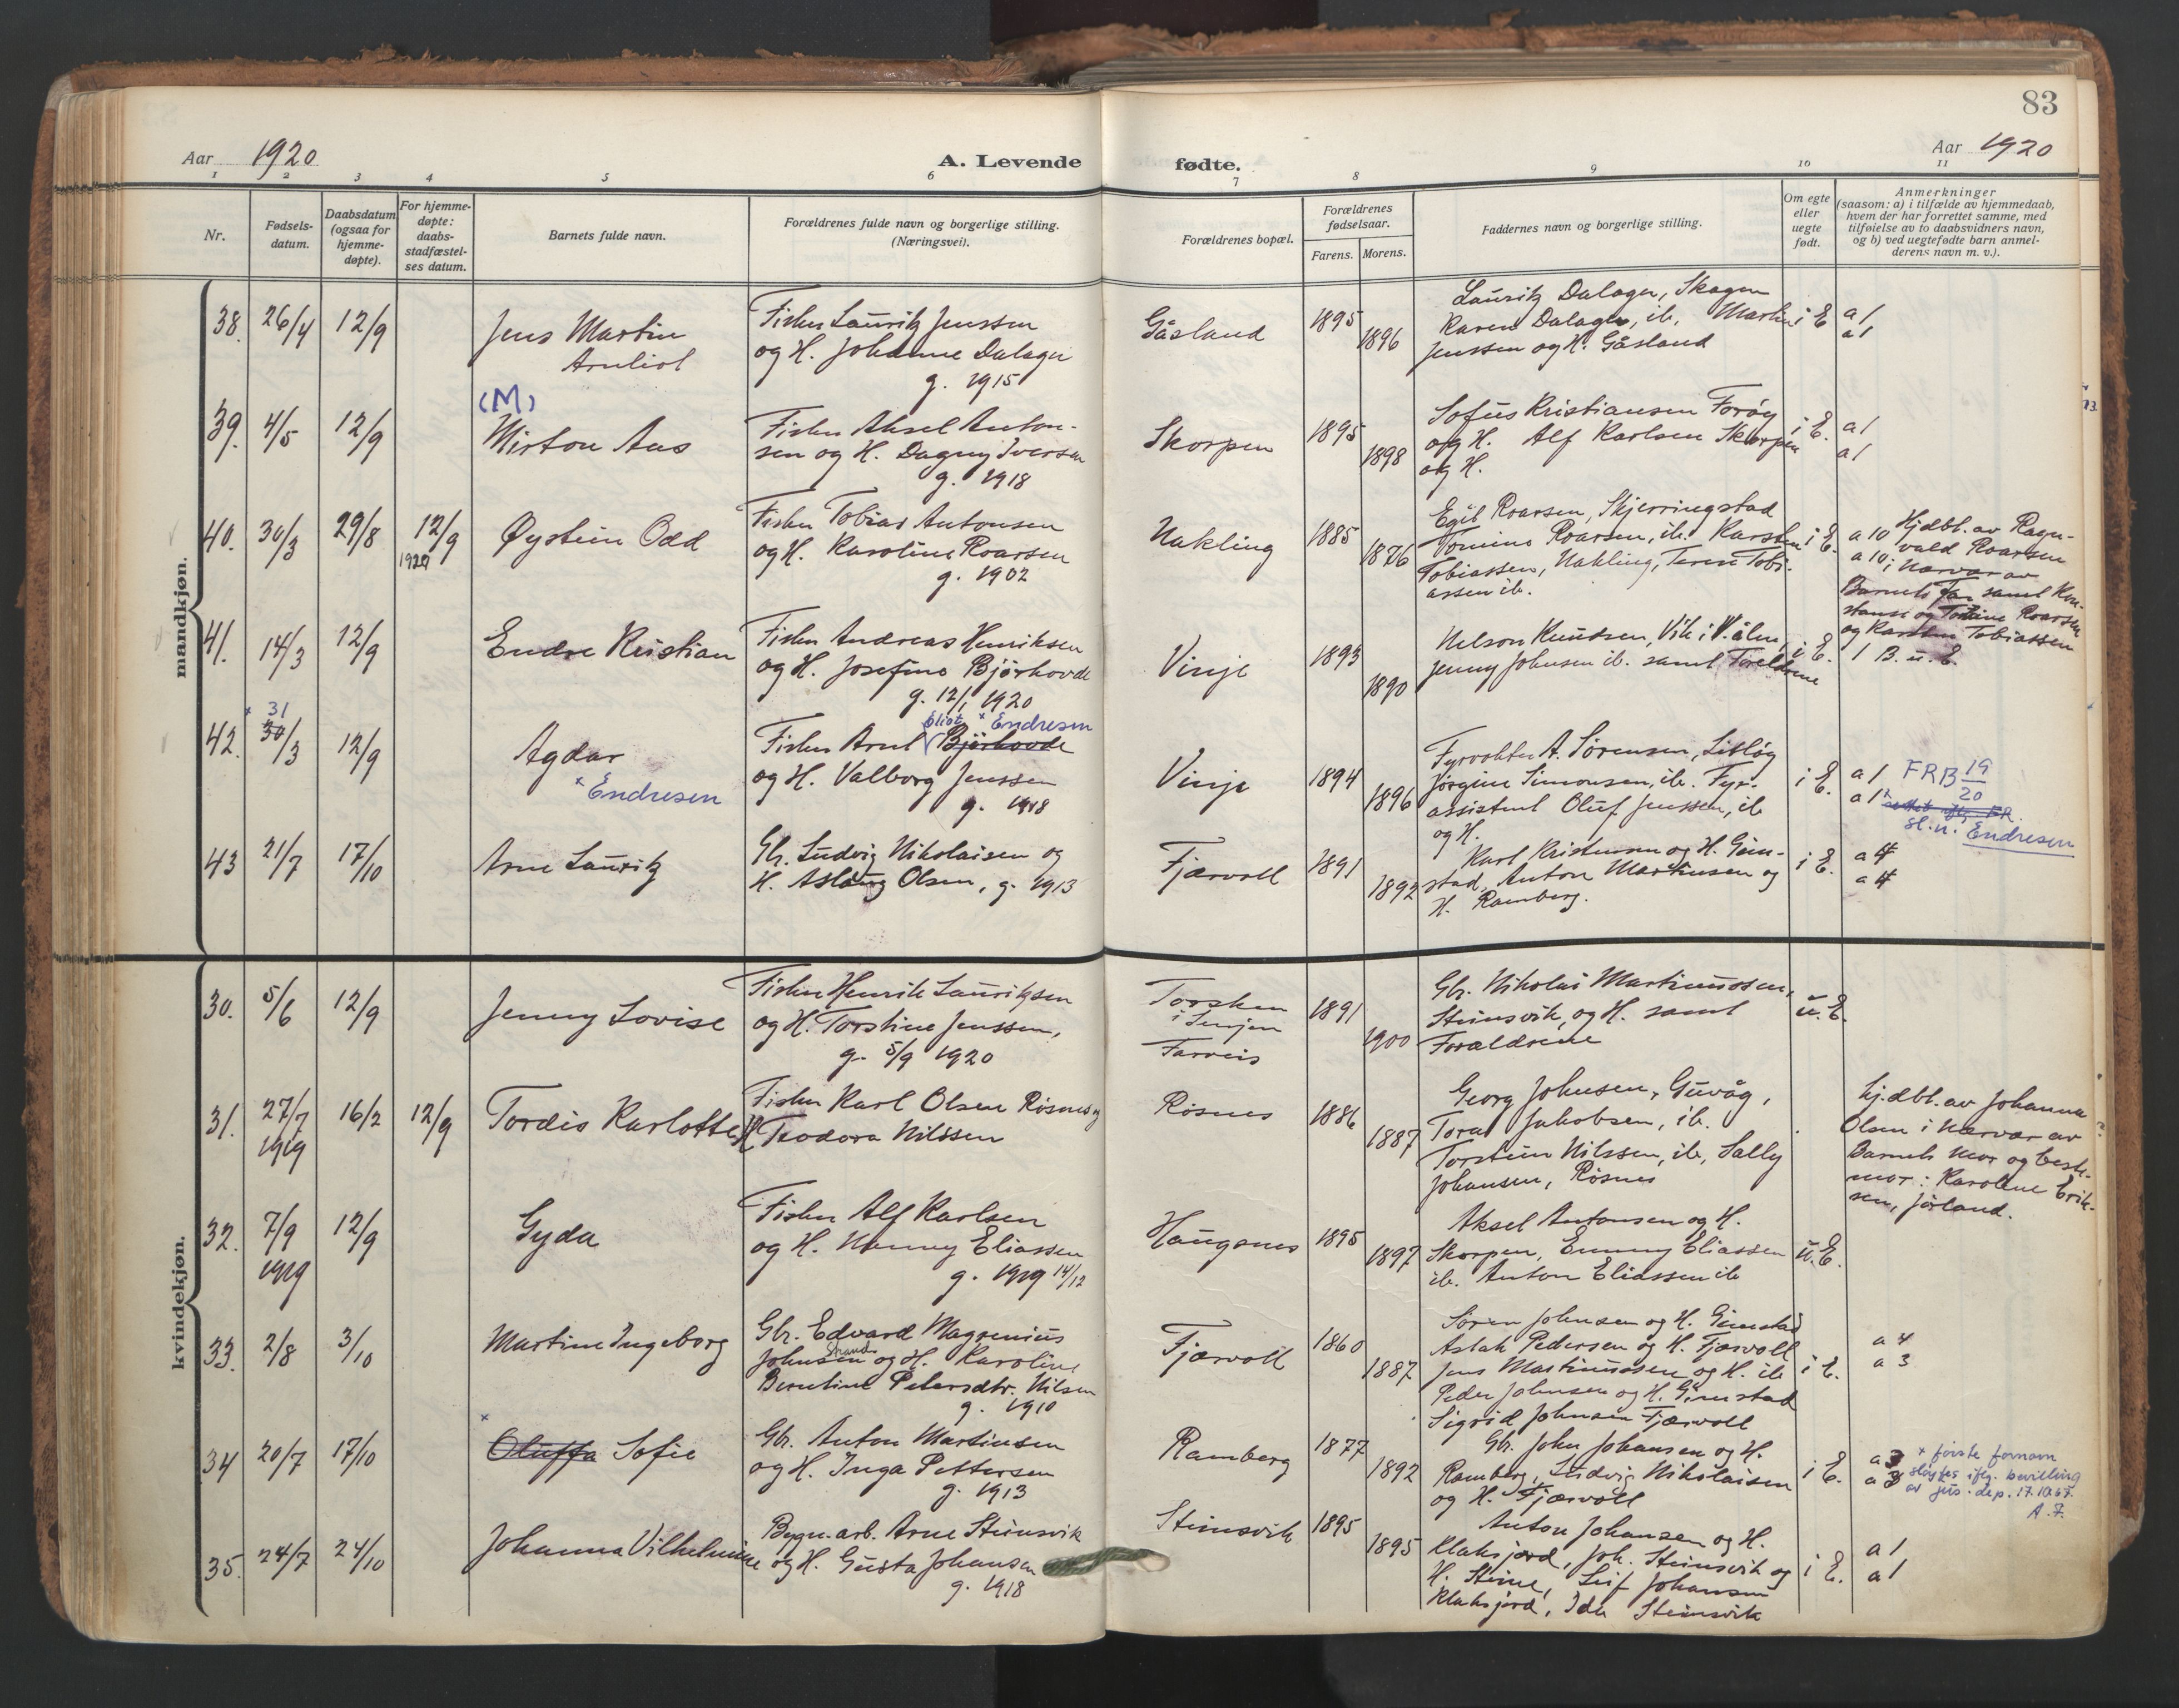 83
Aar 1920
A. Levende fødte.
Aar 1920
1 2 3 4 5 6 7 8 9 10 11
Nr.
Fødsels-
datum.
Daabsdatum
(ogsaa for
hjemme-
døpte).
For hjemme-
døpte:
daabs-
stadfæstel-
ses datum.
Barnets fulde navn.
Forældrenes fulde navn og borgerlige stilling.
(Næringsvei).
Forældrenes bopæl.
Forældrenes
fødselsaar.
Farens. Morens.
Faddernes navn og borgerlige stilling.
Om egte
eller
uegte
født.
Anmerkninger
(saasom: a) i tilfælde av hjemmedaab,
hvem der har forrettet samme, med
tilføielse av to daabsvidners navn,
og b) ved uegtefødte barn anmel-
derens navn m. v.).
mandkjøn.
38. 26/4 12/9
Jens Martin
Arnliot
Fisker Lauritz Jenssen
og H. Johanne Dalager
g. 1915
Gåsland
1895
1896
Lauritz Dalager, Skagen
Karen Dalager, ib. Martin
Jenssen og H. Gåsland
i E.
a 1
a 1
39. 4/5 12/9
(M)
Mirton Aas
Fisker Aksel Anton-
sen og H. Dagny Iversen
g. 1918
Skorpen
1895
1898
Sofus Kristiansen Forøy
og H. Alf Karlsen Skorpen
og H.
i E.
a 1
a 1
40. 30/3 29/8 12/9
1920
Øystein Odd
Fisker Tobias Antonsen
og H. Karoline Roarsen
g. 1902
Nakling
1885
1876
Egil Roarsen, Skjerringstad
Tomine Roarsen, ib. Karsten
Tobiassen, Nakling, Terese Tobi-
assen ib.
i E.
a 10
a 10
Hjdbt. av Ragn-
vald Roarsen
i Nærvær av
Barnets Far samt Kon-
stanse og Tomine Roarsen
og Karsten Tobiassen
41. 14/3 12/9
Endre Kristian
Fisker Andreas Henriksen
og H. Josefine Bjørhovde
g. 12/1 1920
Vinje
1893
1890
Nelson Knudsen, Vik i V.ålen,
Jenny Johnsen ib. samt Foreldrene
i E.
1 B. u. E.
42. x 31
30/3 12/9
Agdar
x Endresen
Eliot x Endresen
Fisker Arnt Bjørhovde
og H. Valborg Jenssen
g. 1918
Vinje
1894
1896
Fyrvokter A. Sørensen, Litløy
Jørgine Simonsen, ib. Fyr-
assistent Oluf Jenssen, ib
og H.
i E.
a 1
a 1
FRB 19/20
sl.n. Endresen
43 21/7 17/10
Arne Lauritz
Gbr. Ludvig Nikolaisen og
H. Aslaug Olsen, g. 1913
Fjærvoll
1891
1892
Karl Kristensen og H. Guin-
stad, Anton Martinsen og
H. Ramberg.
i E.
a 4
a 4
kvindekjøn.
30. 5/6 12/9
Jenny Lovise
Fisker Henrik Lauritzsen
og H. Torstine Jenssen,
g. 5/9 1920
Torsken
i Senjen
Farveis
1891
1900
Gbr. Nikolai Martinussen,
Steinsvik, og H. samt
Forældrene
u. E.
31. 27/7
1919
16/2 12/9
Tordis Karlotte
Fisker Karl Olsen Rösnes og
H. Teodora Nilssen
Rösnes
1886
1887
Georg Johnsen, Guvåg,
Tora Jakobsen, ib.
Torstein Nilssen, ib, Sally
Johansen, Rösnes
hj.dbt. av Johanna
Olsen i Nærvær av
Barnets Mor og beste-
mor: Karolene Erik-
sen, Jörland.
32. 7/9
1919
12/9
Gyda
Fisker Alf Karlsen
og H. Nanny Eliassen
g. 1919 14/12
Haugsnes
1895
1897
Aksel Antonsen og H.
Skorpen, Emmy Eliassen
ib. Anton Eliassen ib
u. E.
33. 2/8 3/10
Martine Ingeborg
Gbr. Edvard Magrenius
Johnsen Strand og H. Karoline
Berntine Petersdtr. Nilsen
g. 1910
Fjærvoll
1860
1887
Søren Johnsen og H. Guinstad
Aslak Pedersen og H. Fjærvoll
Jens Martinussen og H. ib
Peder Johnsen og H. Guinstad
Sigrid Johnsen Fjærvoll
i E.
a 4
a 3
34 20/7 17/10
x
Oluffa Sofie
Gbr. Anton Martinsen
og H. Inga Pettersen
g. 1913
Ramberg
1877
1892
Gbr. John Johansen og H.
Ramberg, Ludvig Nikolaisen
og H. Fjærvoll
i E.
x første fornavn
sløyfes iflg. bevilling
av jus. dep. 17.10.67.
A. F.
35. 24/7 24/10
Johanna Vilhelmine
Bygn.arb. Arne Steinsvik
og H. Gusta Johansen
g. 1918
Steinsvik
1895
1895
Anton Johansen og H.
Klaksjord, Joh. Steinsvik og
H. Steine, Leif Johansen
Klaksjord, Ida Steinsvik
i E.
a 1
a 1